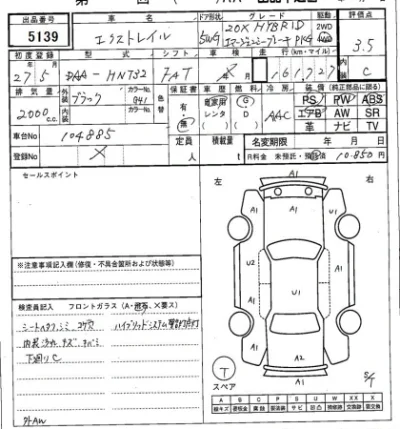 出品番号 車名 ドア形状 グレード 駆動 評価点
5139 エクストレイル 5WG 20X HYBRID 2WD 3.5
エマージェンシーブレーキ PKG 4WD
初度登録 型式 シフト 車検 走行(km・マイル) 内装
27 5 DAA-HNT32 FAT 年 月 161,727 C
排気量 外装 カラーNo. 色替 保証書 車歴 燃料 冷房 装備(純正部品に限る)
2000cc ブラック G41 有・無 自家用 G AAC PS PW ABS
内装 カラーNo. レンタ D エアB AW SR
( ) ( ) 革 ナビ TV
車台No 104885 定員 積載量 名変期限 年 月 日
登録No × 人 t R料金 未預託・預託済 10850円
セールスポイント
左 右
※注意事項記入欄(修復・不具合箇所および状態等)
検査員記入 フロントガラス(A・飛石、×要ス)
シートヘタリ、シミ、コゲ穴 ハイブリッドシステム警告灯点灯
内装汚れ、キズ、
下廻りC
外AW
A1
A1 A1
U2 A1
U1
A1 A1
A2
A1
T
スペア
A B C P S U W X XX
線キズ 要板金 腐食 要塗装 サビ 凹凸 補修跡 要交換 交換跡